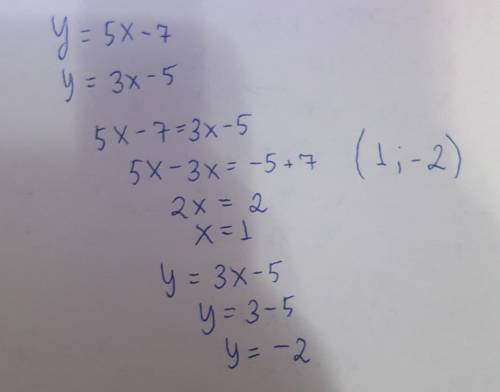 y = 5x - 7
y = 3x - 5
5x - 7 = 3x - 5
5x - 3x = -5 + 7 (1; -2)
2x = 2
x = 1
y = 3x - 5
y = 3 - 5
y = -2